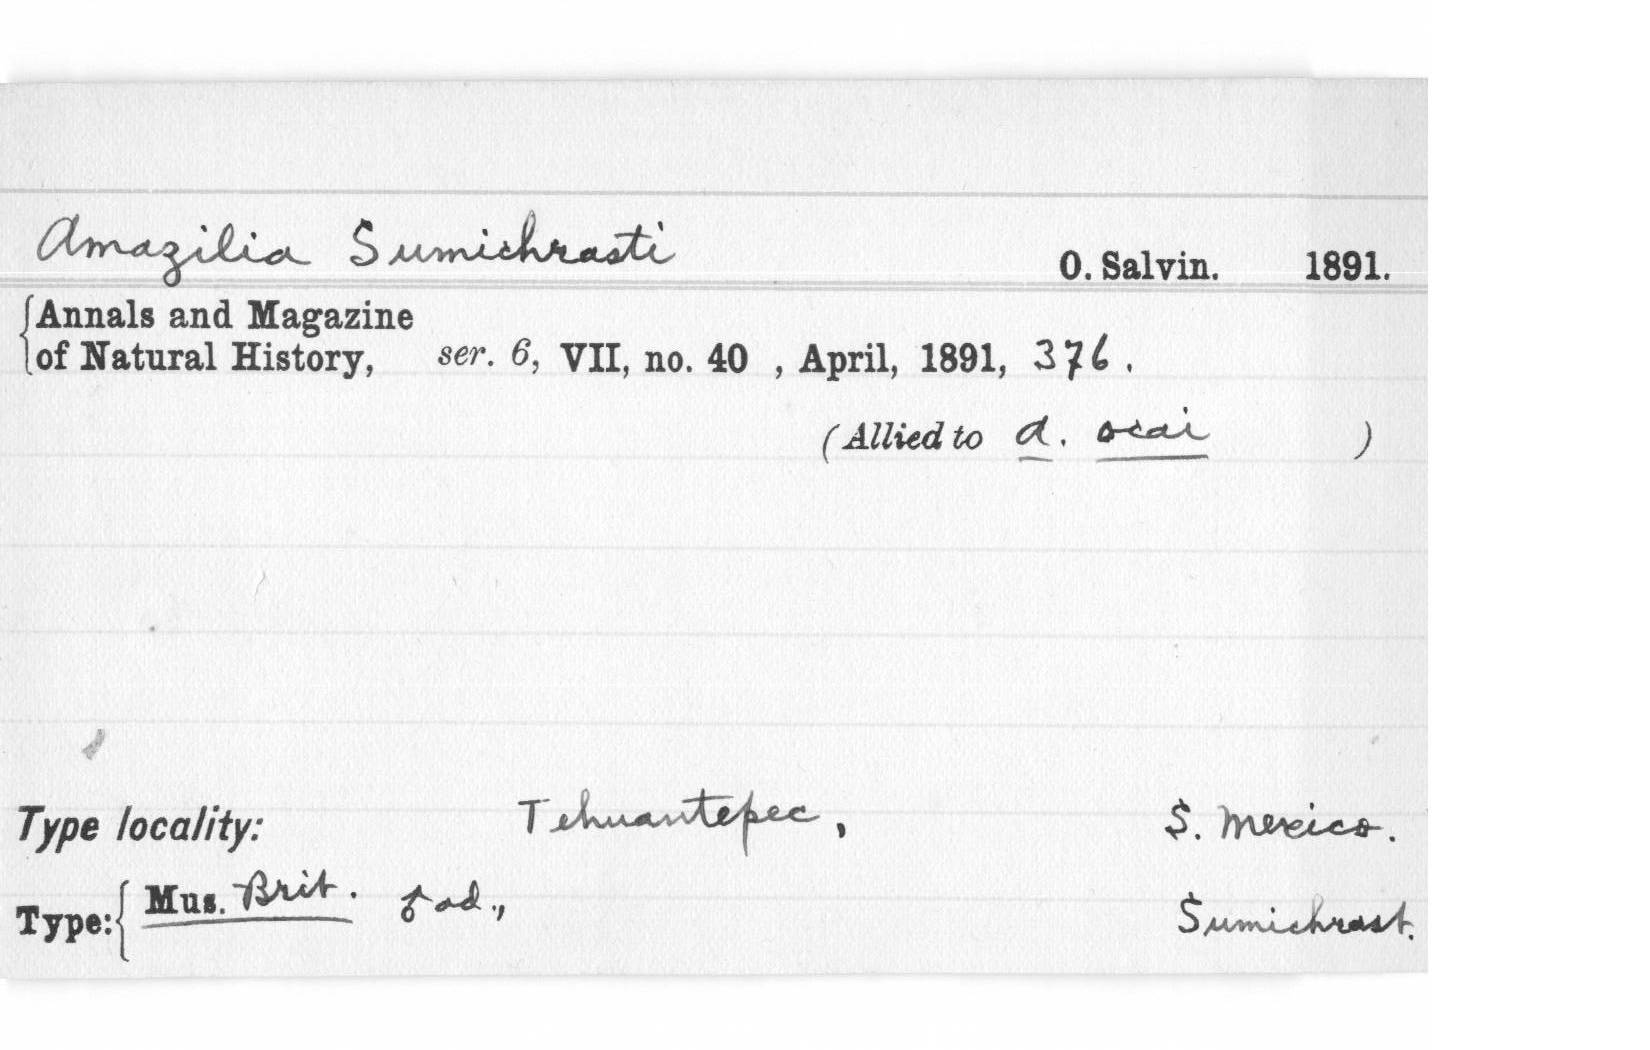 Amazilia Sumichrasti O. Salvin. 1891.
Annals and Magazine
of Natural History, ser. 6, VII, no. 40 , April, 1891, 376.
(Allied to A. ocai )
Type locality: Tehuantepec, S. Mexico.
Type: Mus. Brit. ♂ ad., Sumichrast.